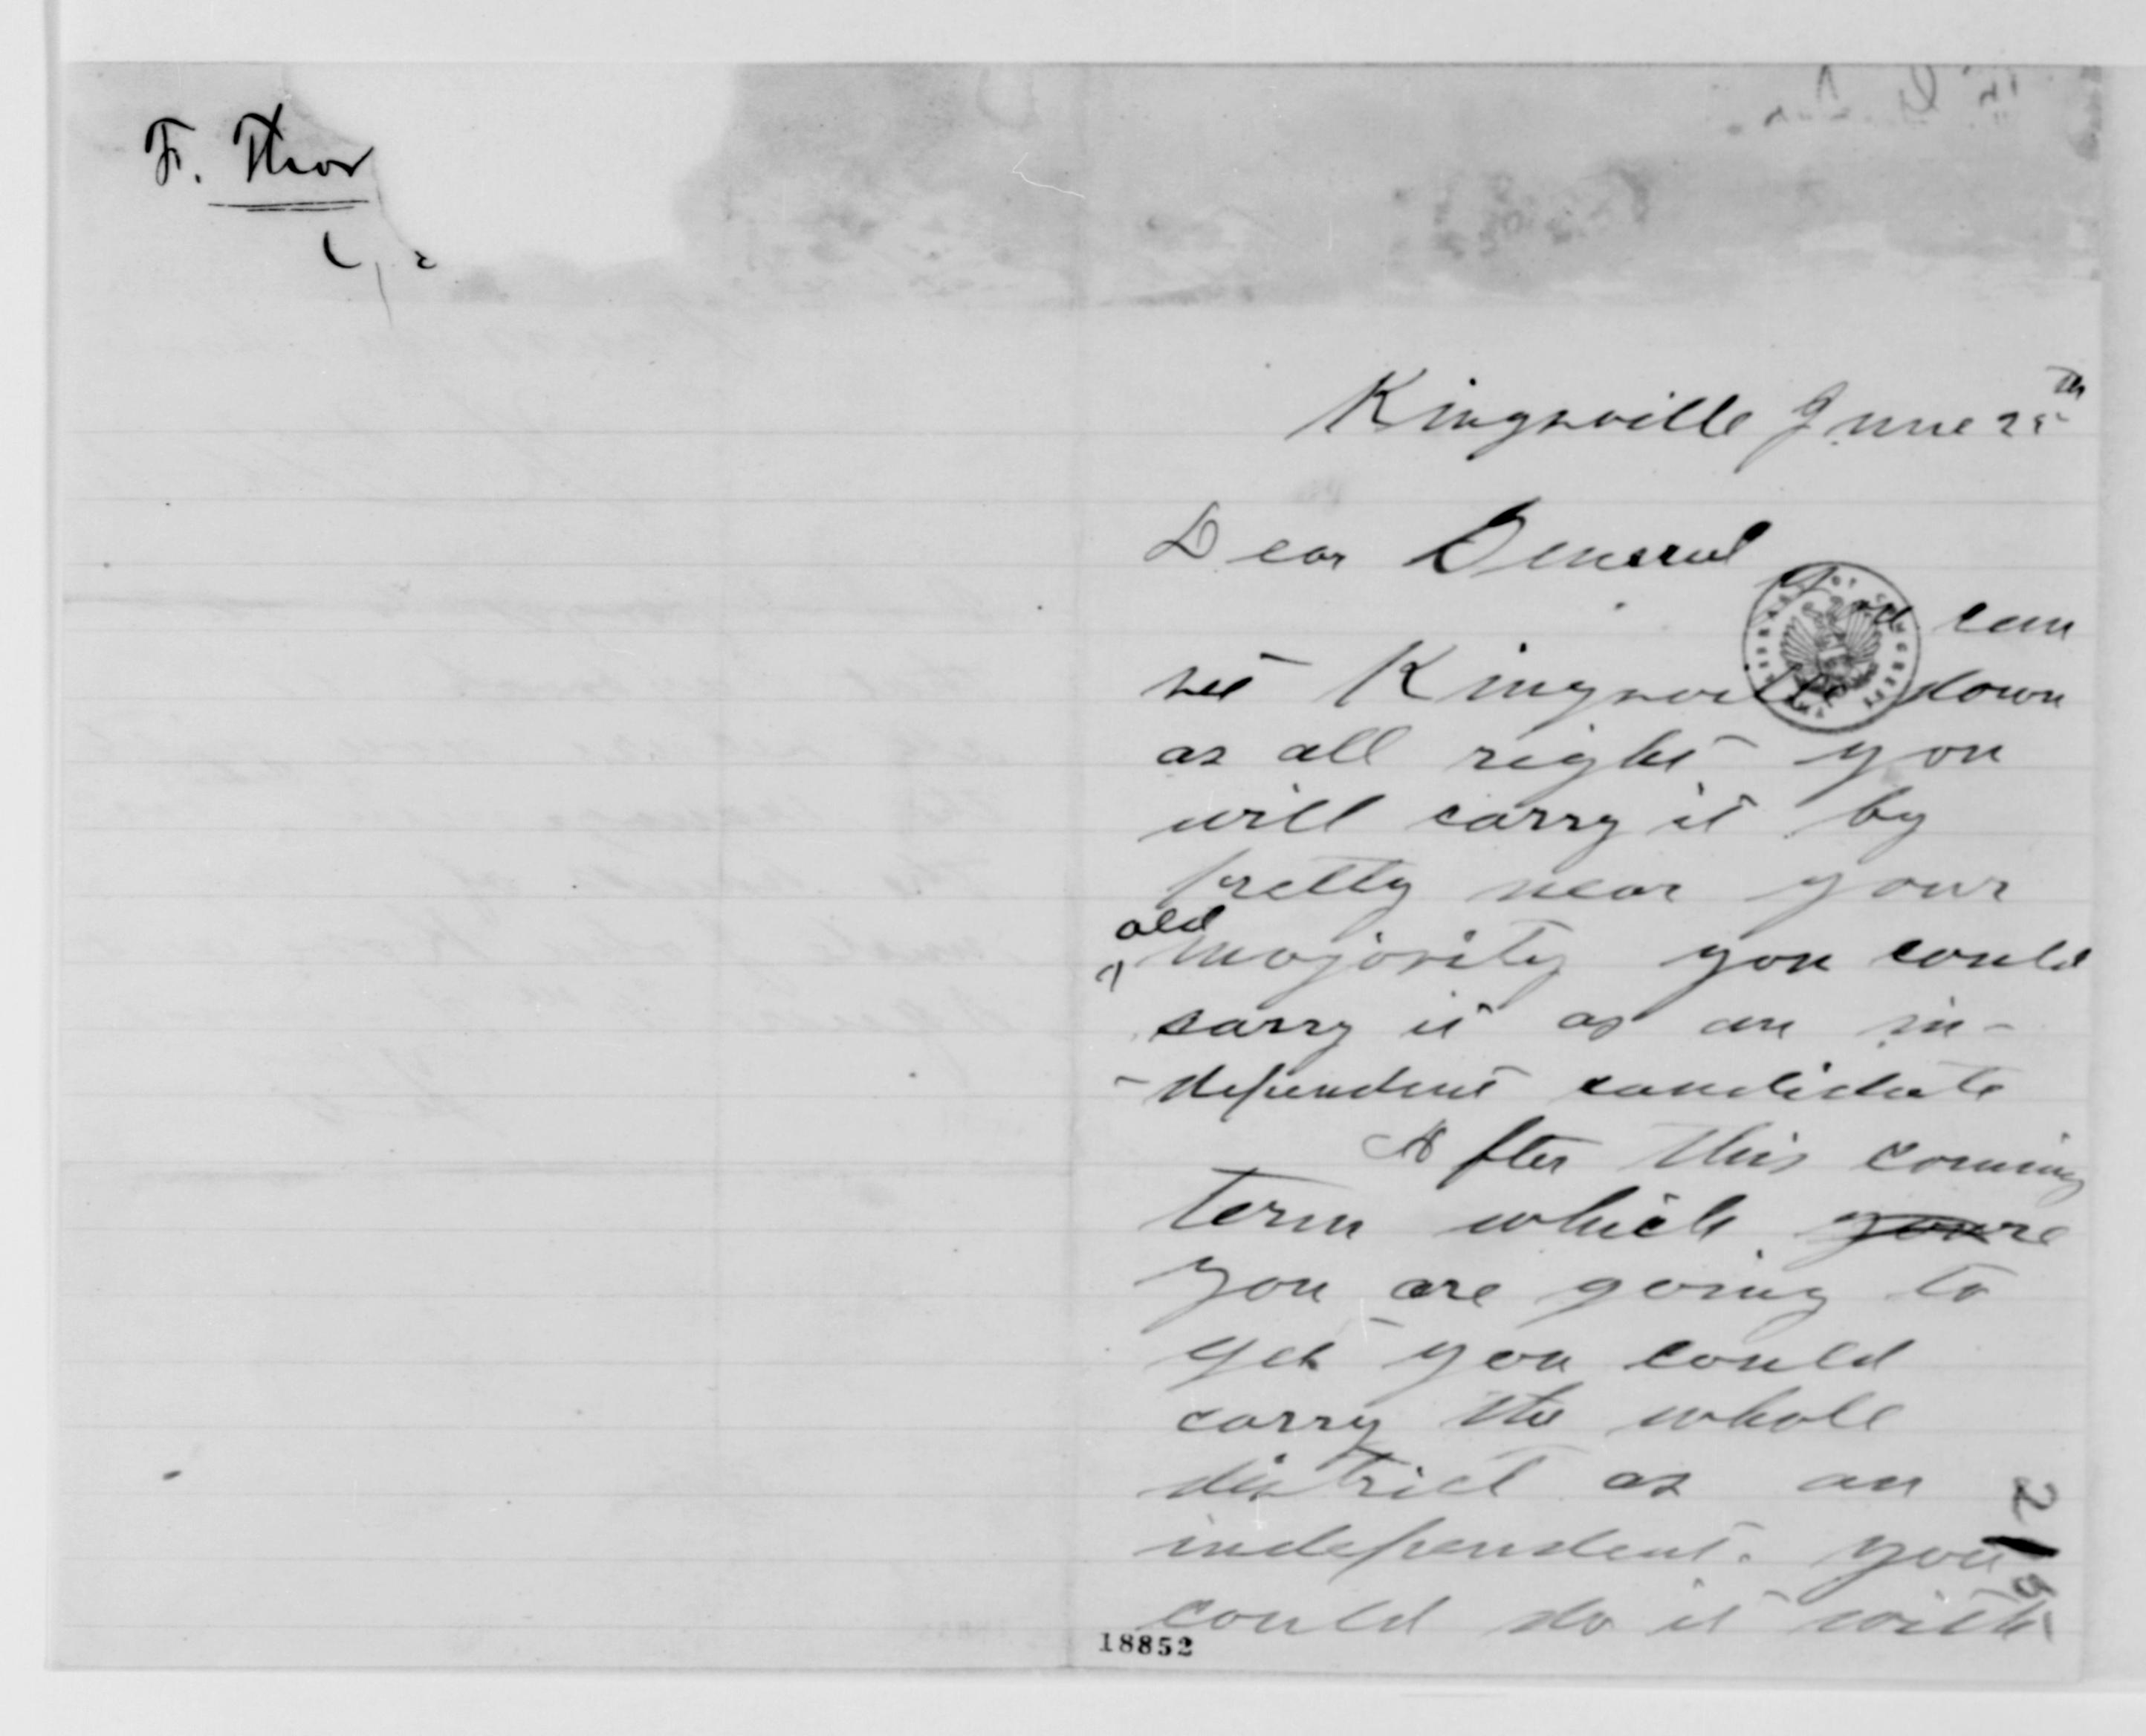 F. Thor
Kingsville June 25th
Dear General
You can
set Kingsville down
as all right you
will carry it by
pretty near your
old
majority you could
carry it as an in-
-dependent candidate
After this coming
term which youre
you are going to
get you could
carry the whole
district as an
independent. you
could do it with
18852